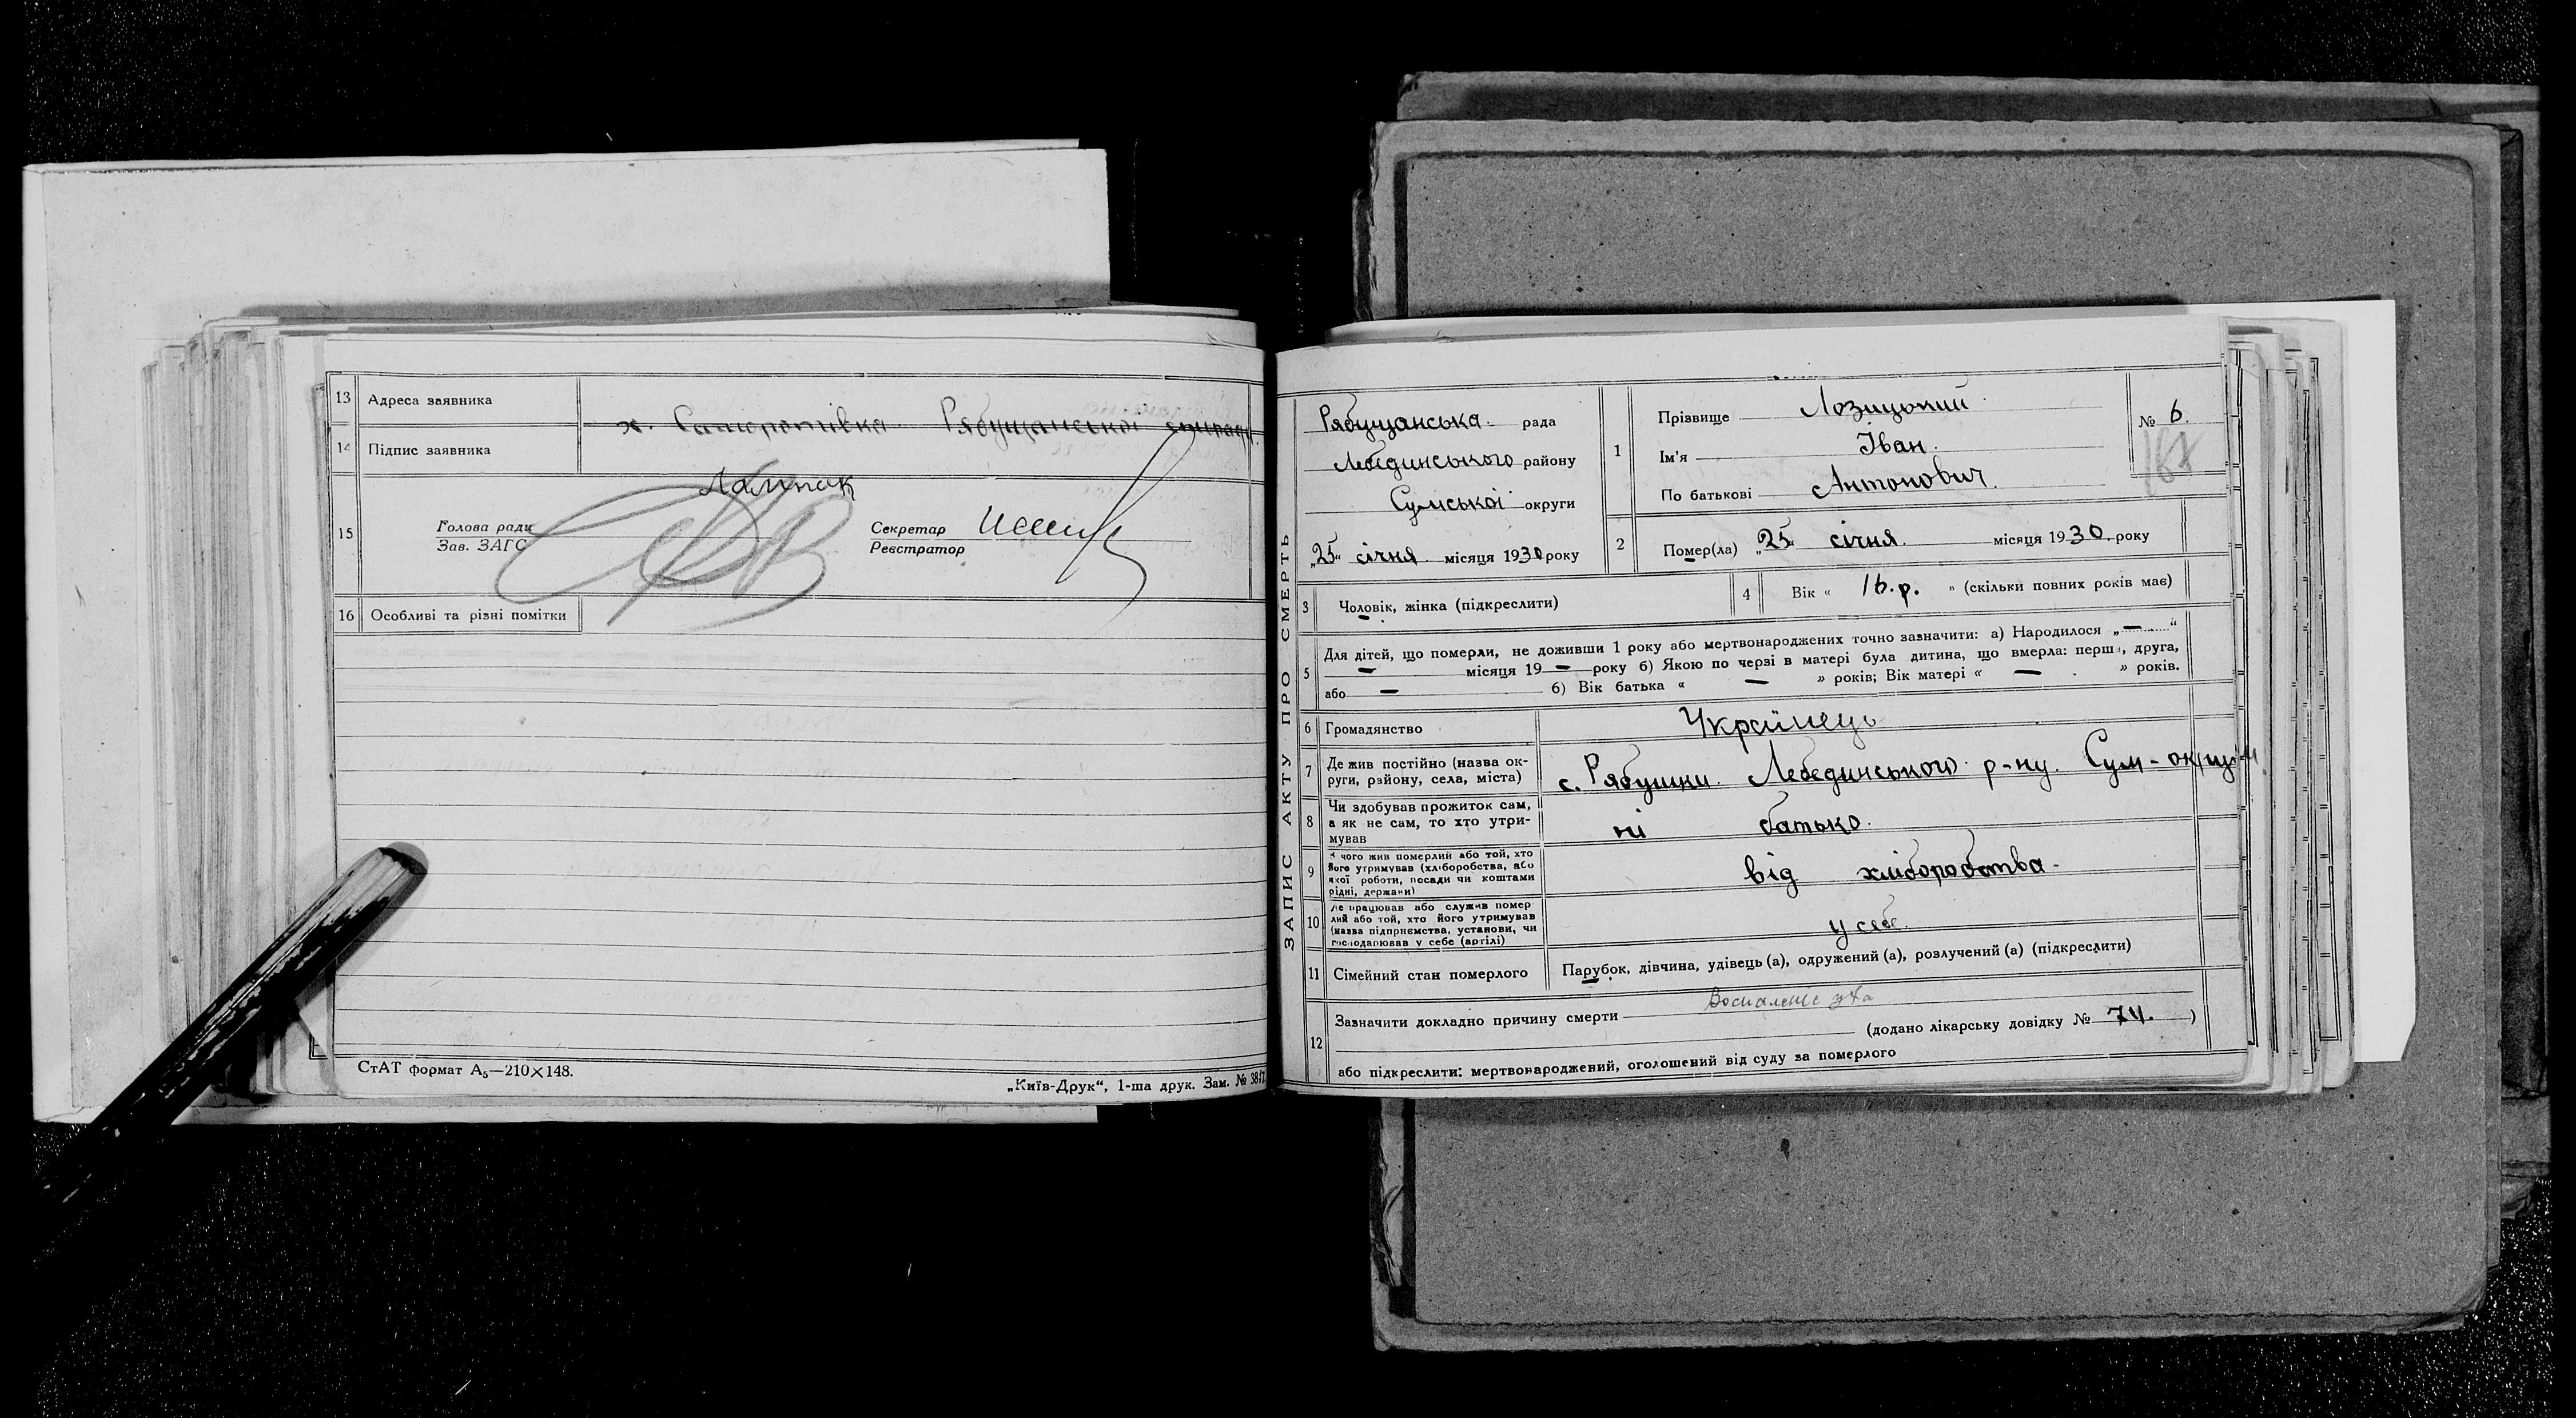 13 Адреса заявника х. Рябущанської сільради.
14 Підпис заявника
15 Голова ради
Зав. ЗАГС
Секретар
Реєстратор
16 Особливі та різні помітки
СтАТ формат А₅—210×148.
„Київ-Друк“, 1-ша друк. Зам. №
ЗАПИС АКТУ ПРО СМЕРТЬ
Рябущанська рада
Лебединського району
Сумської округи
„25“ січня місяця 1930 року
1 Прізвище Лозицький
Ім'я Іван.
По батькові Антонович.
№ 6.
168
2 Помер(ла) „25“ січня місяця 1930 року
3 Чоловік, жінка (підкреслити)
4 Вік « 16.р. » (скільки повних років має)
5 Для дітей, що померли, не доживши 1 року або мертвонароджених точно зазначити: а) Народилося „—“
— місяця 19 — року б) Якою по черзі в матері була дитина, що вмерла: перша, друга,
або — б) Вік батька « — » років; Вік матері « — » років.
6 Громадянство Українець
7 Де жив постійно (назва ок-
руги, району, села, міста) с. Рябушки Лебединського р-ну. Сум-округи
8 Чи здобував прожиток сам,
а як не сам, то хто утри-
мував ні батько.
9 З чого жив померлий або той, хто
його утримував (хліборобства, або
якої роботи, посади чи коштами
рідні, держави) від хліборобства.
10 Де працював або служив помер
лий або той, хто його утримував
(назва підприємства, установи, чи
господарював у себе (артілі) у себе.
11 Сімейний стан померлого Парубок, дівчина, удівець(а), одружений(а), розлучений(а) (підкреслити)
12 Зазначити докладно причину смерти Воспаление уха
(додано лікарську довідку № 74. )
або підкреслити: мертвонароджений, оголошений від суду за померлого